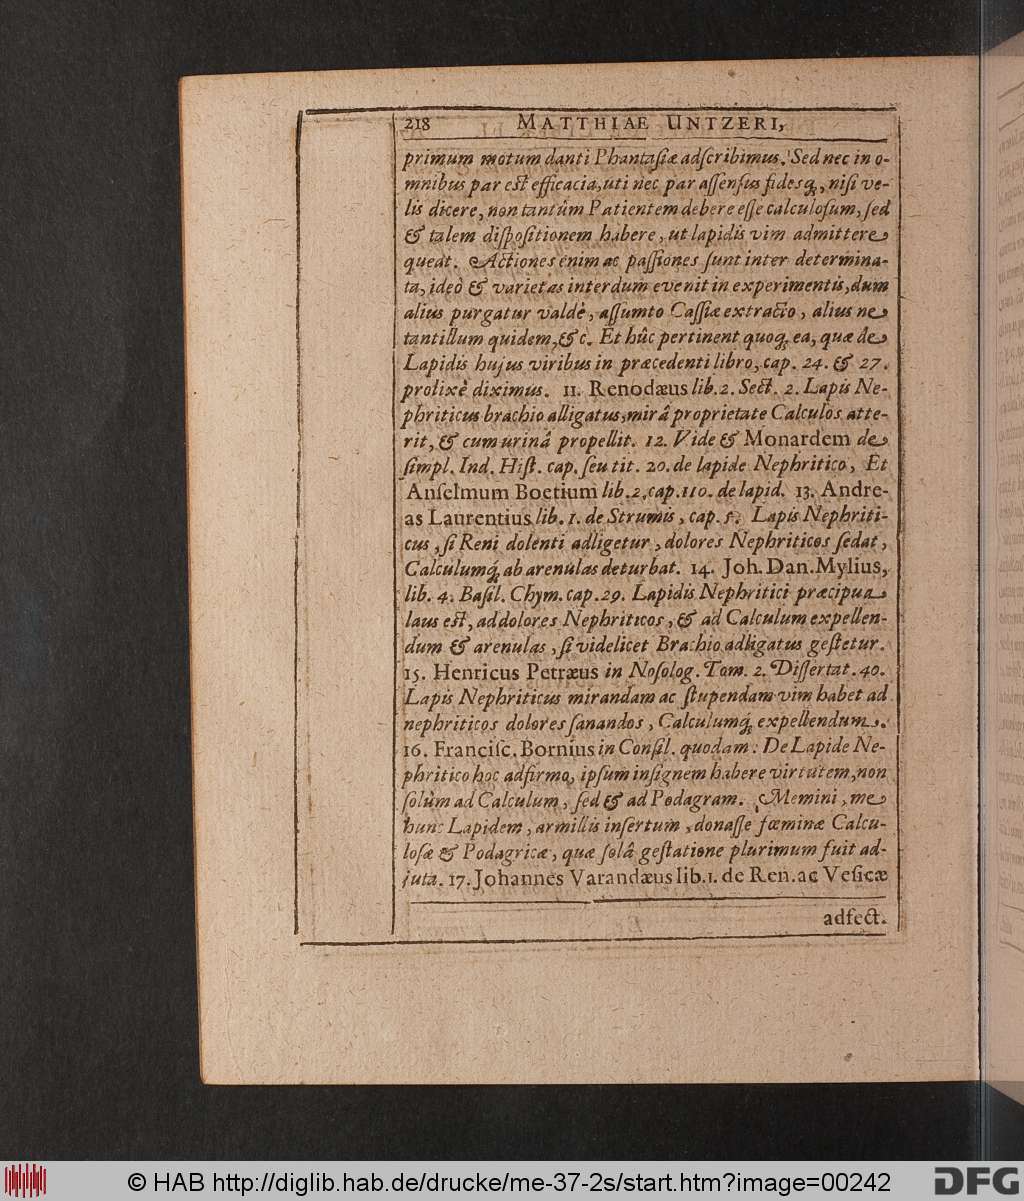 218 MATTHIAE UNTZERI,
primum motum danti Phantasiæ adſcribimus. Sed nec in o-
mnibus par est efficacia, uti nec par aſſenſus fidesq́, niſi ve-
lis dicere, non tantùm Patientem debere eſſe calculoſum, ſed
& talem diſpoſitionem habere, ut lapidis vim admittere
queat. Actiones enim ac paſſiones ſunt inter determina-
ta, ideò & varietas interdum evenit in experimentis, dum
alius purgatur valdè, aſſumto Caſſiæ extracto, alius ne
tantillum quidem, &c. Et hûc pertinent quoq́ ea, quæ de
Lapidis hujus viribus in præcedenti libro, cap. 24. & 27.
prolixè diximus. 11. Renodæus lib. 2. Sect. 2. Lapis Ne-
phriticus brachio alligatus, mirâ proprietate Calculos atte-
rit, & cum urinâ propellit. 12. Vide & Monardem de
ſimpl. Ind. Hiſt. cap. ſeu tit. 20. de lapide Nephritico, Et
Anſelmum Boetium lib. 2. cap. 110. de lapid. 13. Andre-
as Laurentius lib. 1. de Strumis, cap. 5. Lapis Nephriti-
cus, ſi Reni dolenti adligetur, dolores Nephriticos ſedat,
Calculumq́ ab arenulas deturbat. 14. Joh. Dan. Mylius,
lib. 4. Baſil. Chym. cap. 29. Lapidis Nephritici præcipua
laus est, ad dolores Nephriticos, & ad Calculum expellen-
dum & arenulas, ſi videlicet Brachio adligatus geſtetur.
15. Henricus Petræus in Noſolog. Tom. 2. Diſſertat. 40.
Lapis Nephriticus mirandam ac ſtupendam vim habet ad
nephriticos dolores ſanandos, Calculumq́ expellendum.
16. Franciſc. Bornius in Conſil. quodam: De Lapide Ne-
phritico hoc adfirmo, ipſum inſignem habere virtutem, non
ſolùm ad Calculum, ſed & ad Podagram. Memini, me
hunc Lapidem, armillis inſertum, donaſſe fœminæ Calcu-
loſæ & Podagricæ, quæ ſolâ geſtatione plurimum fuit ad-
juta. 17. Johannes Varandæus lib. 1. de Ren. ac Veſicæ
adfect.
© HAB http://diglib.hab.de/drucke/me-37-2s/start.htm?image=00242
DFG